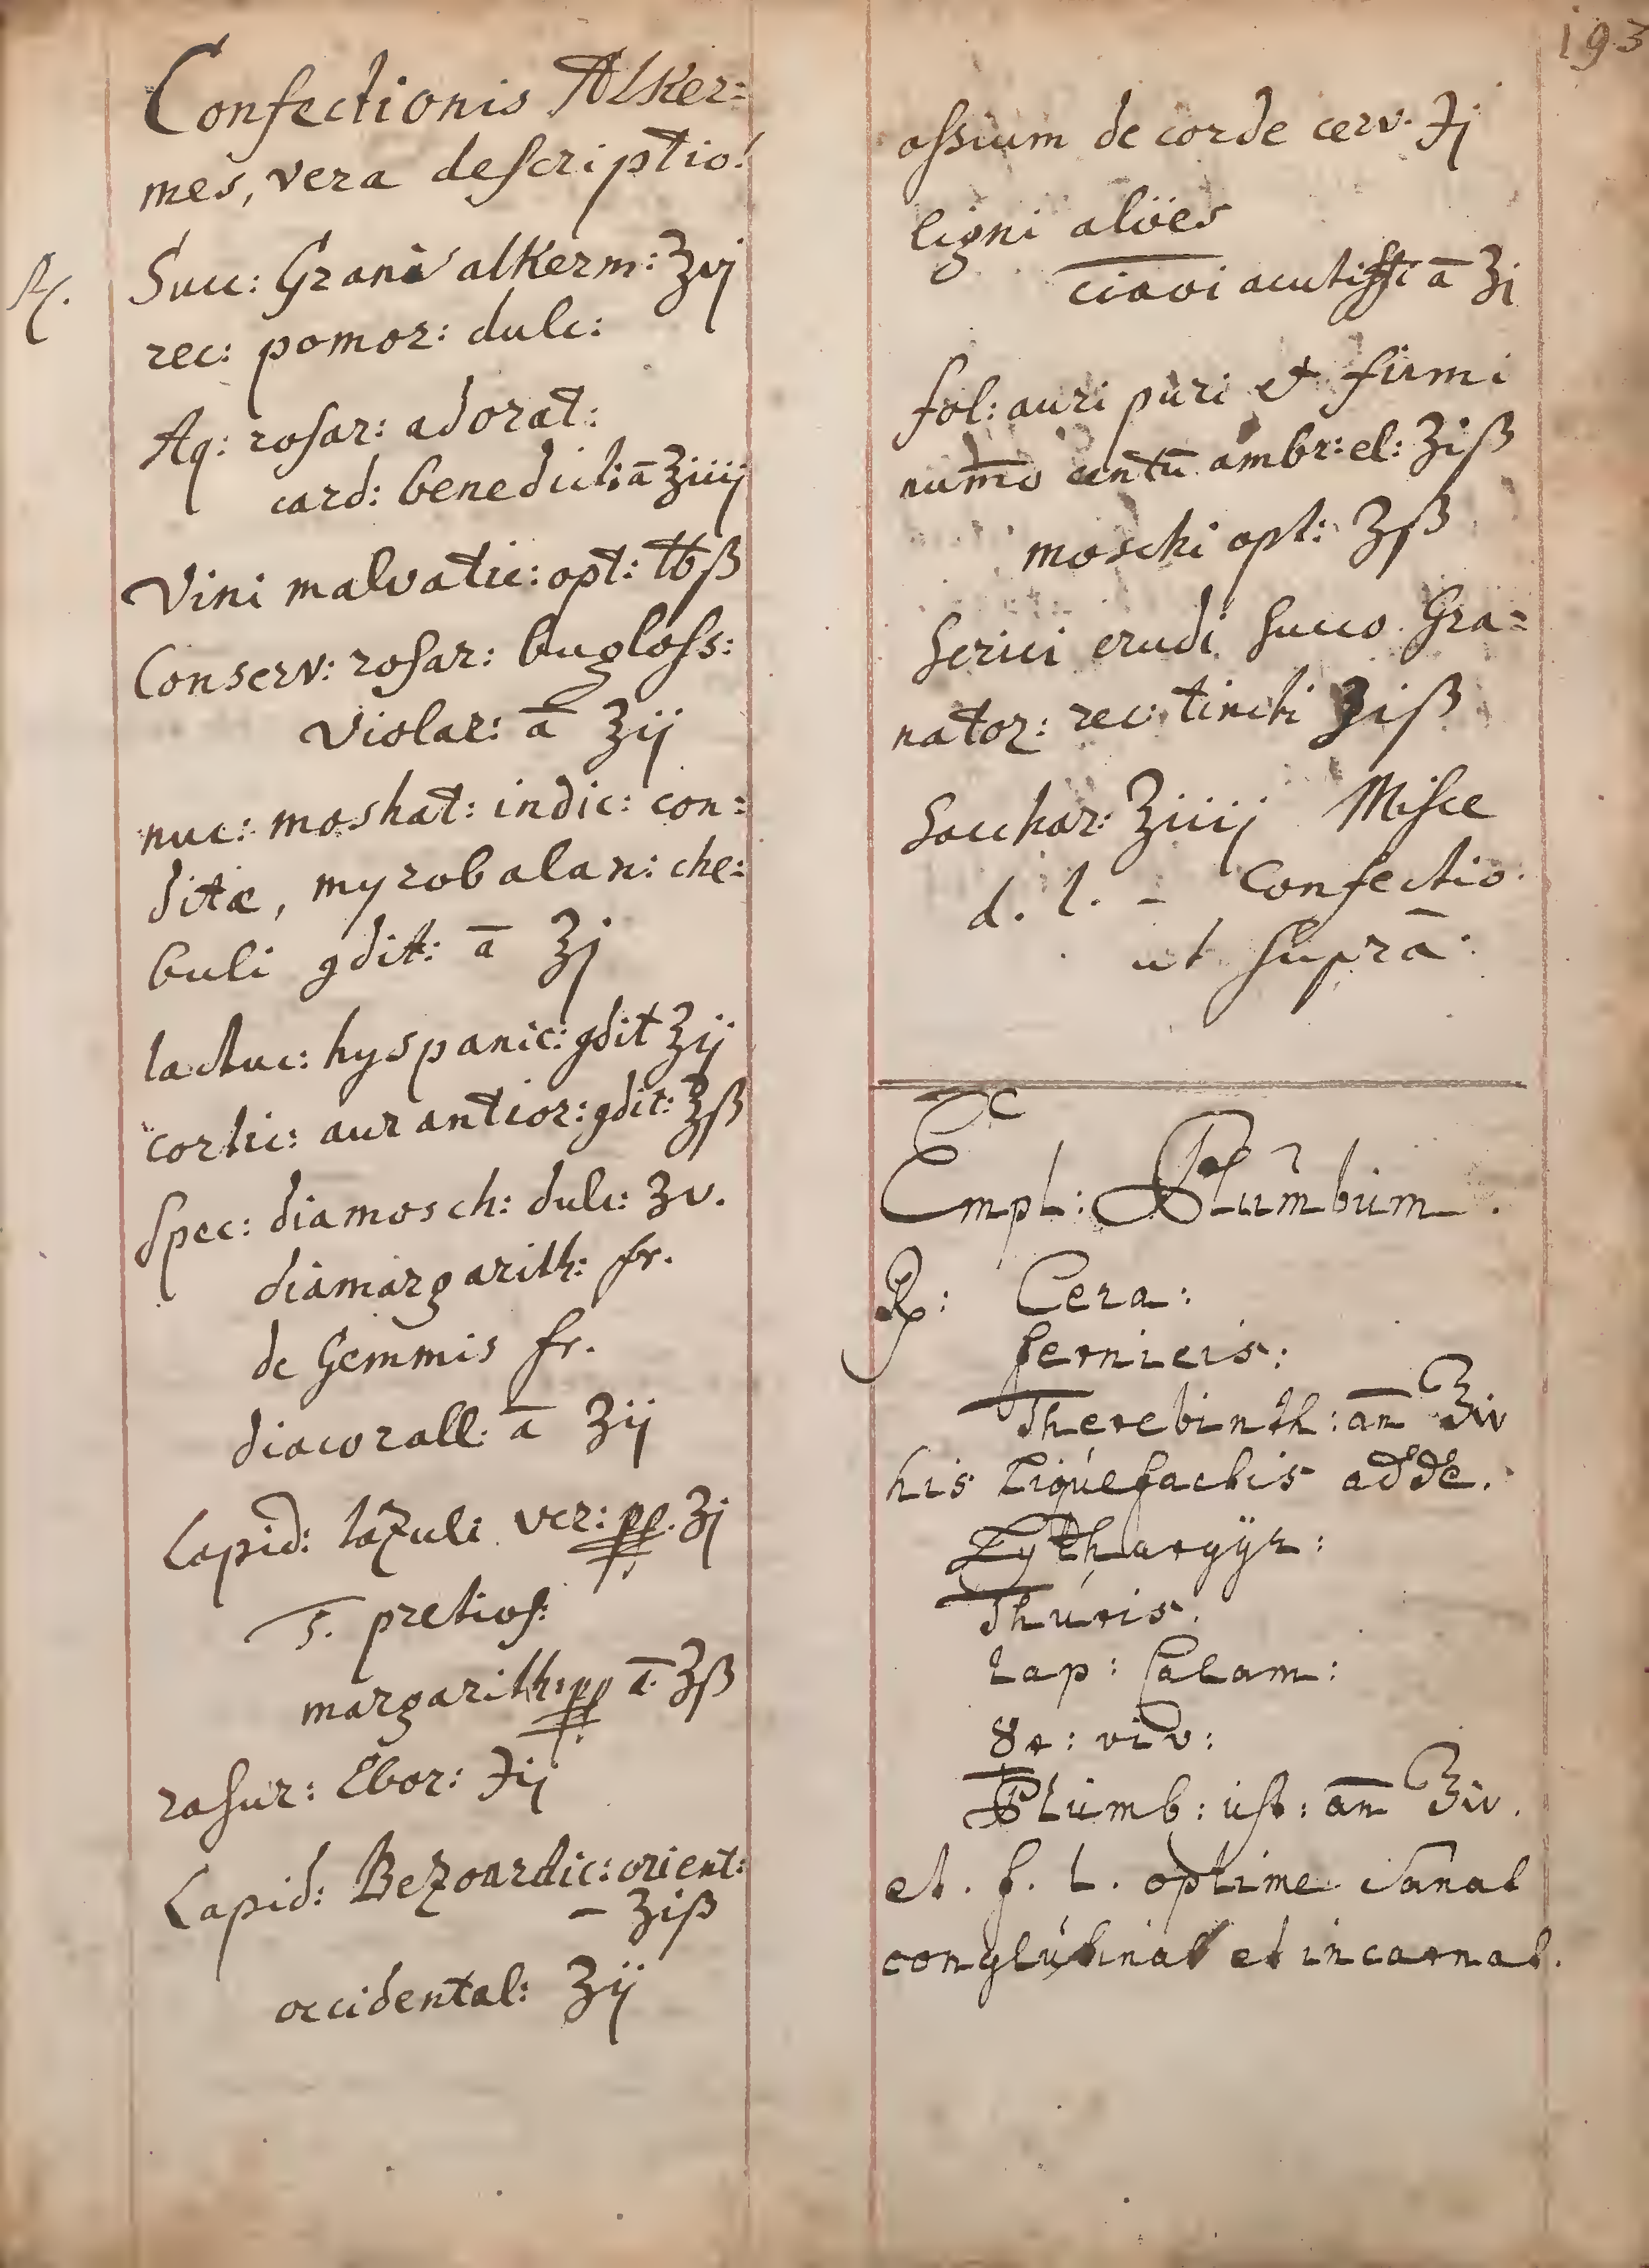 193
Confectionis Alker=
mes, vera descriptio!
℞. Succ: Grani alkerm: ℥vj
rec: pomor: dulc:
Aq: rosar: adorat:
card: benedict: ā ℥iiij
Vini malvatic: opt: ℔ß
Conserv: rosar: bugloss:
violar: ā ℥ij
nuc: moshat: indic: con=
ditæ, myrobalan: che=
buli ꝯdit: ā ℥j
lactuc: hyspanic: ꝯdit ℥ij
cortic: aurantior: ꝯdit: ℥ß
Spec: diamosch: dulc: ʒv.
diamargarith: fr.
de Gemmis fr.
diacorall: ā ʒij
Lapid: lazuli ver: pp. ʒj
5. pretios:
margarith: pp ā. ʒß
rasur: Ebor: ℈ij
Lapid: Bezoardic: orient:
– ʒiß
occidental: ʒij
ossium de corde cerv. ℈j
ligni alöes
acutiss ā ʒj
fol: auri puri et firmi
num̄o centū ambr: el: ʒiß
moschi opt: ʒß
Serici crudi succo Gra=
nator: rec: tincti ʒiß
Sacchar: ℥iiij Misce
d. l. – Confectio.
ut suprā.
Empl: Plumbum.
℞: Cera:
fernicis:
Therebinth: an̄ ℥iv
his liquefactis adde.
Lythargÿr:
Thuris.
Lap: Calam:
viv:
Plumb: ust: an̄ ℥iv.
et. f. l. optime sanat
conglutinat et incarnat.